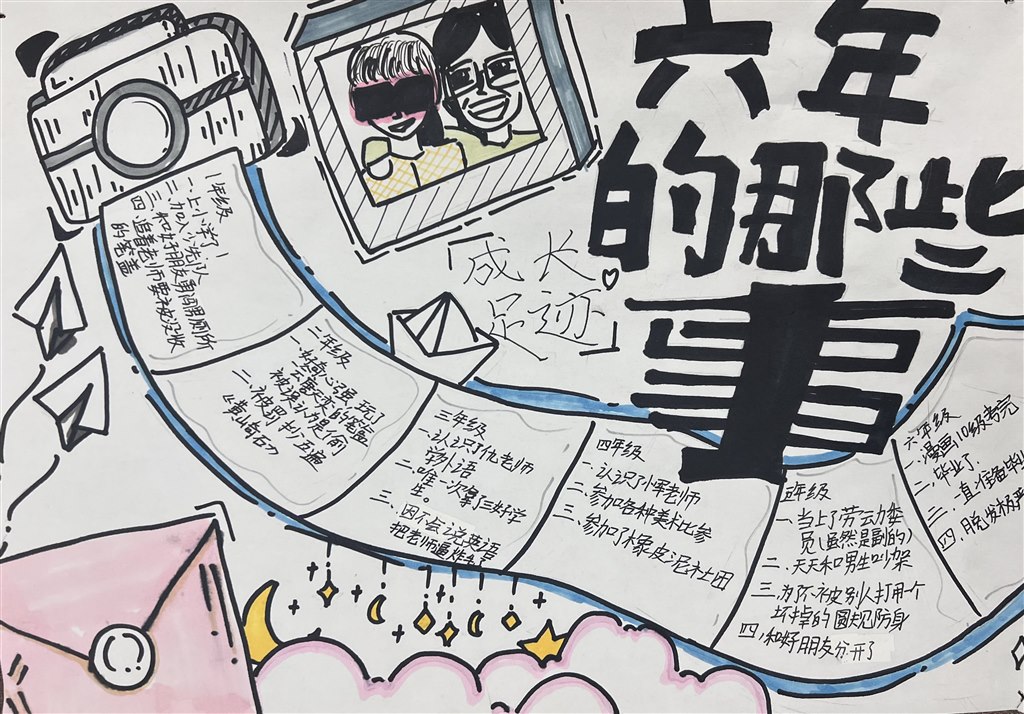 六年
的那些
事
「成长
足迹」
一年级
一、上小学了！
二、加入少先队
三、和好朋友勇闯男厕所
四、追着老师要被没收
的笔盖
二年级
一、好奇心强,玩了
云康天亦的笔盖
被误认为是偷
二、被罚抄五遍
《黄山奇石》
三年级
一、认识了仇老师
学外语
二、唯一一次拿了三好学
生。
三、因不会说英语
把老师逼炸毛了
四年级
一、认识了小军老师
二、参加各种美术比参
三、参加了橡皮泥社团
五年级
一、当上了劳动委
员(虽然是副的)
二、天天和男生吵架
三、为不被别人打用个
坏掉的圆规防身
四、和好朋友分开了
六年级
一、漫画10级考完
二、毕业了
三、一直准备毕业
四、脱发极严